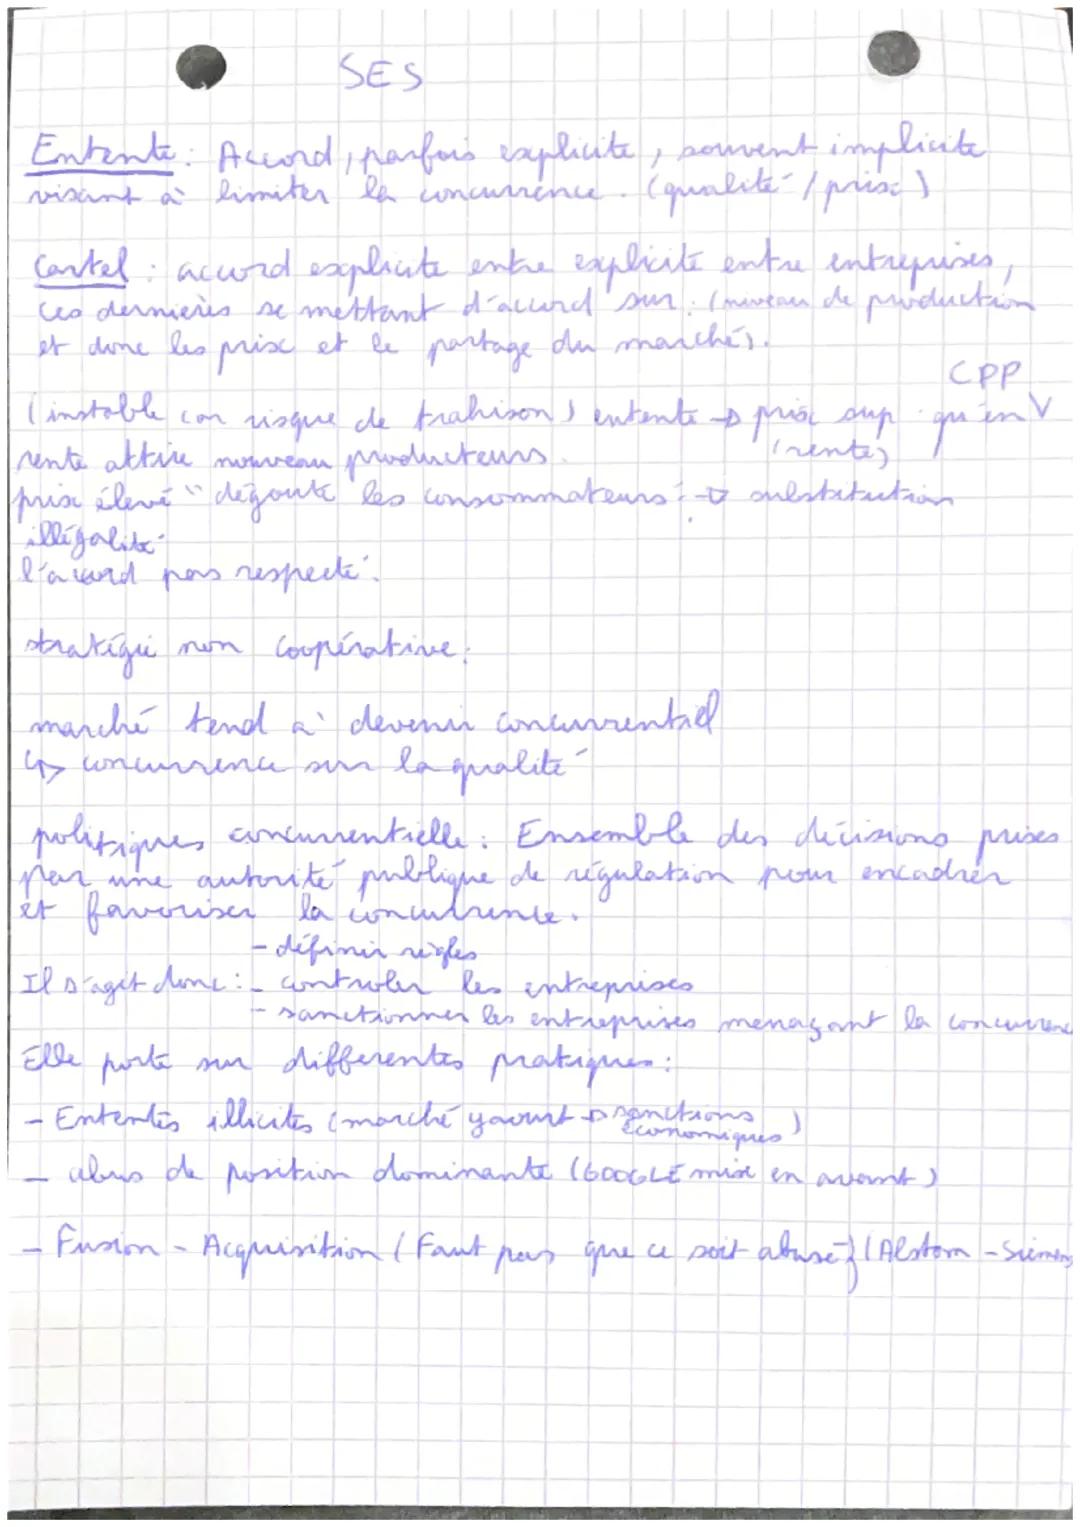 SES
Entente : Accord, parfois explicite, souvent implicite
visant à limiter la concurrence. (qualité / prix)
Cartel : accord explicite entre explicite entre entreprises,
ces dernières se mettant d'accord sur : (niveau de production
et donc les prix et le partage du marché).
CPP
(instable car risque de trahison) entente → prix sup qu'en V
(rente)
rente attire nouveau producteurs.
prix élevé "dégoute les consommateurs" → substitution
illégalité
l'accord pas respecté.
stratégie non coopérative :
marché tend à devenir concurrentiel
↳ concurrence sur la qualité
politiques concurrentielle : Ensemble des décisions prises
par une autorité publique de régulation pour encadrer
et favoriser la concurrence.
- définir règles
Il s'agit donc : - controler les entreprises
- sanctionner les entreprises menaçant la concurrence
Elle porte sur differentes pratiques :
- Ententes illicites (marché yaourt → sanctions
économiques)
- abus de position dominante (GOOGLE mise en avant)
- Fusion - Acquisition (Faut pas que ce soit abusé) (Alstom - Siemens